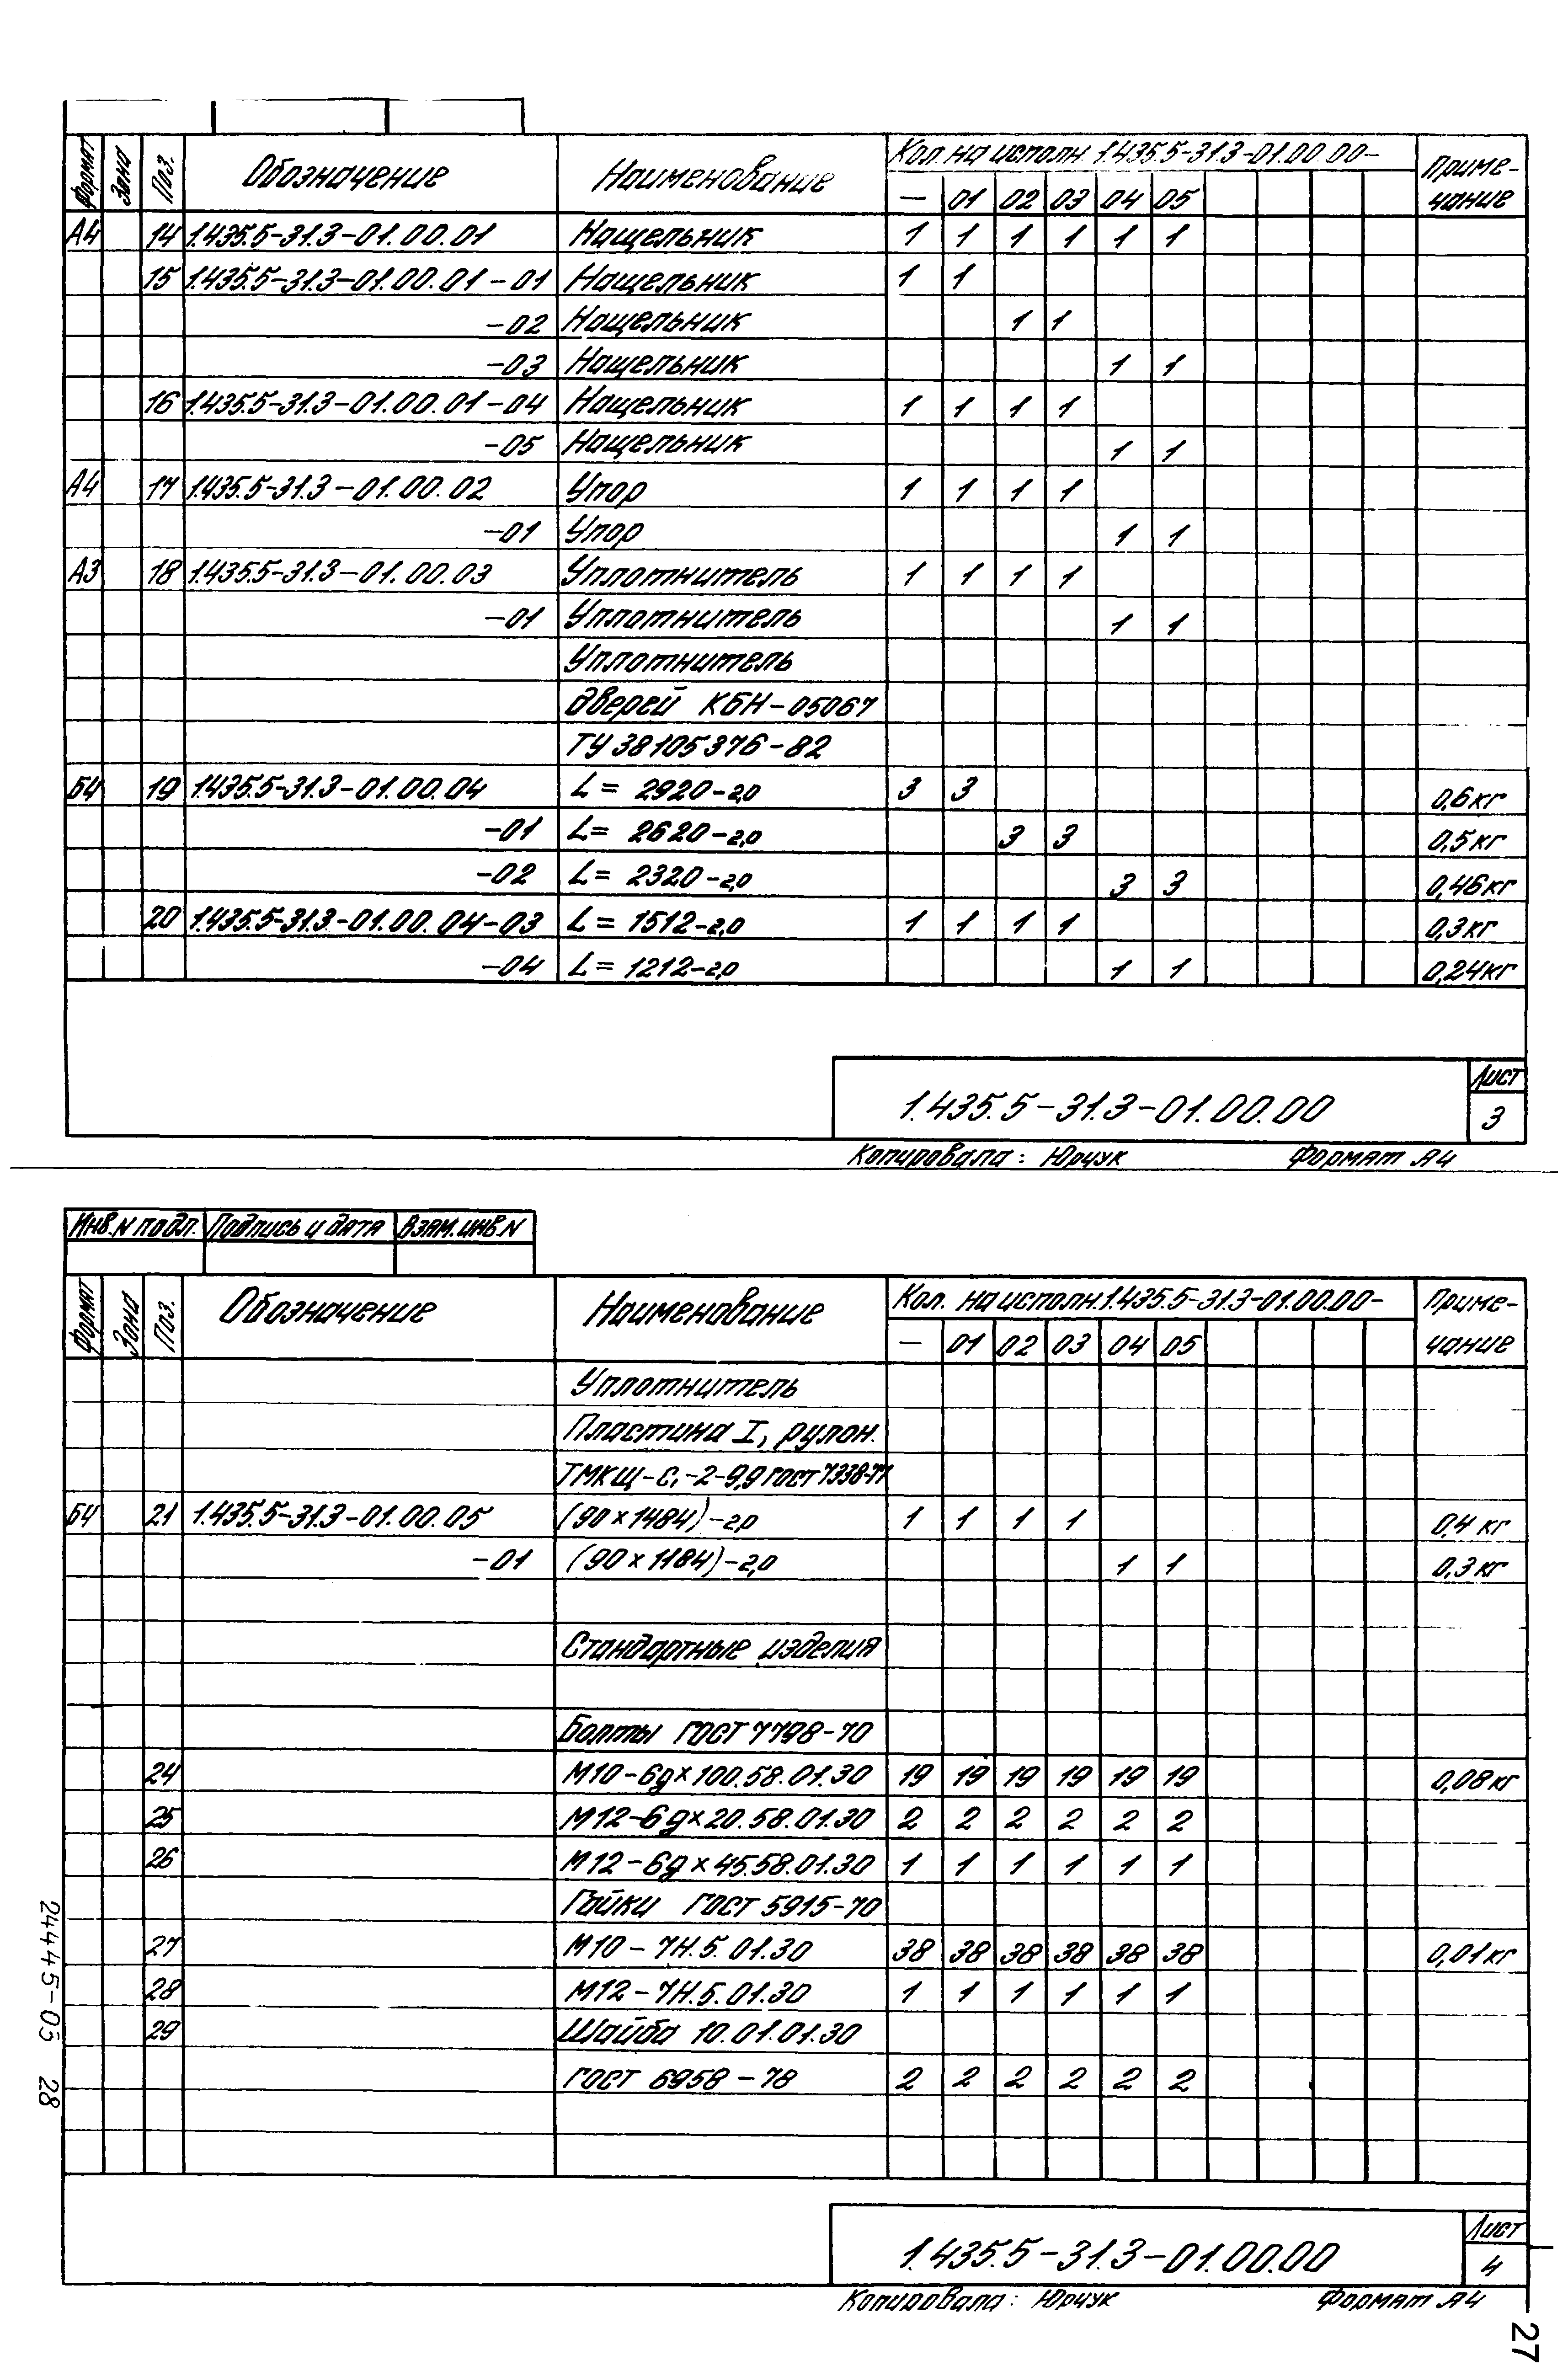 Формат Зона Поз. Обозначение Наименование Кол. на исполн. 1.435.5-31.3-01.00.00- Приме-
— 01 02 03 04 05 чание
А4 14 1.435.5-31.3-01.00.01 Нащельник 1 1 1 1 1 1
15 1.435.5-31.3-01.00.01-01 Нащельник 1 1
-02 Нащельник 1 1
-03 Нащельник 1 1
16 1.435.5-31.3-01.00.01-04 Нащельник 1 1 1 1
-05 Нащельник 1 1
А4 17 1.435.5-31.3-01.00.02 Упор 1 1 1 1
-01 Упор 1 1
А3 18 1.435.5-31.3-01.00.03 Уплотнитель 1 1 1 1
-01 Уплотнитель 1 1
Уплотнитель
дверей КБН-05067
ТУ 38105376-82
БЧ 19 1.435.5-31.3-01.00.04 L= 2920-2,0 3 3 0,6кг
-01 L= 2620-2,0 3 3 0,5кг
-02 L= 2320-2,0 3 3 0,46кг
20 1.435.5-31.3-01.00.04-03 L= 1512-2,0 1 1 1 1 0,3кг
-04 L= 1212-2,0 1 1 0,24кг
1.435.5-31.3-01.00.00 Лист
3
Копировала: Юрчук Формат А4
Инв.N подл. Подпись и дата Взам.инв.N
Формат Зона Поз. Обозначение Наименование Кол. на исполн. 1.435.5-31.3-01.00.00- Приме-
— 01 02 03 04 05 чание
Уплотнитель
Пластина I, рулон.
ТМКЩ-С1-2-9,9 ГОСТ 7338-77
БЧ 21 1.435.5-31.3-01.00.05 (90×1484)-2,0 1 1 1 1 0,4 кг
-01 (90×1184)-2,0 1 1 0,3 кг
Стандартные изделия
Болты ГОСТ 7798-70
24 М10-6g×100.58.01.30 19 19 19 19 19 19 0,08кг
25 М12-6g×20.58.01.30 2 2 2 2 2 2
26 М12-6g×45.58.01.30 1 1 1 1 1 1
Гайки ГОСТ 5915-70
27 М10-7Н.5.01.30 38 38 38 38 38 38 0,01кг
28 М12-7Н.5.01.30 1 1 1 1 1 1
29 Шайба 10.01.01.30
ГОСТ 6958-78 2 2 2 2 2 2
1.435.5-31.3-01.00.00 Лист
4
Копировала: Юрчук Формат А4
24445-03 28
27